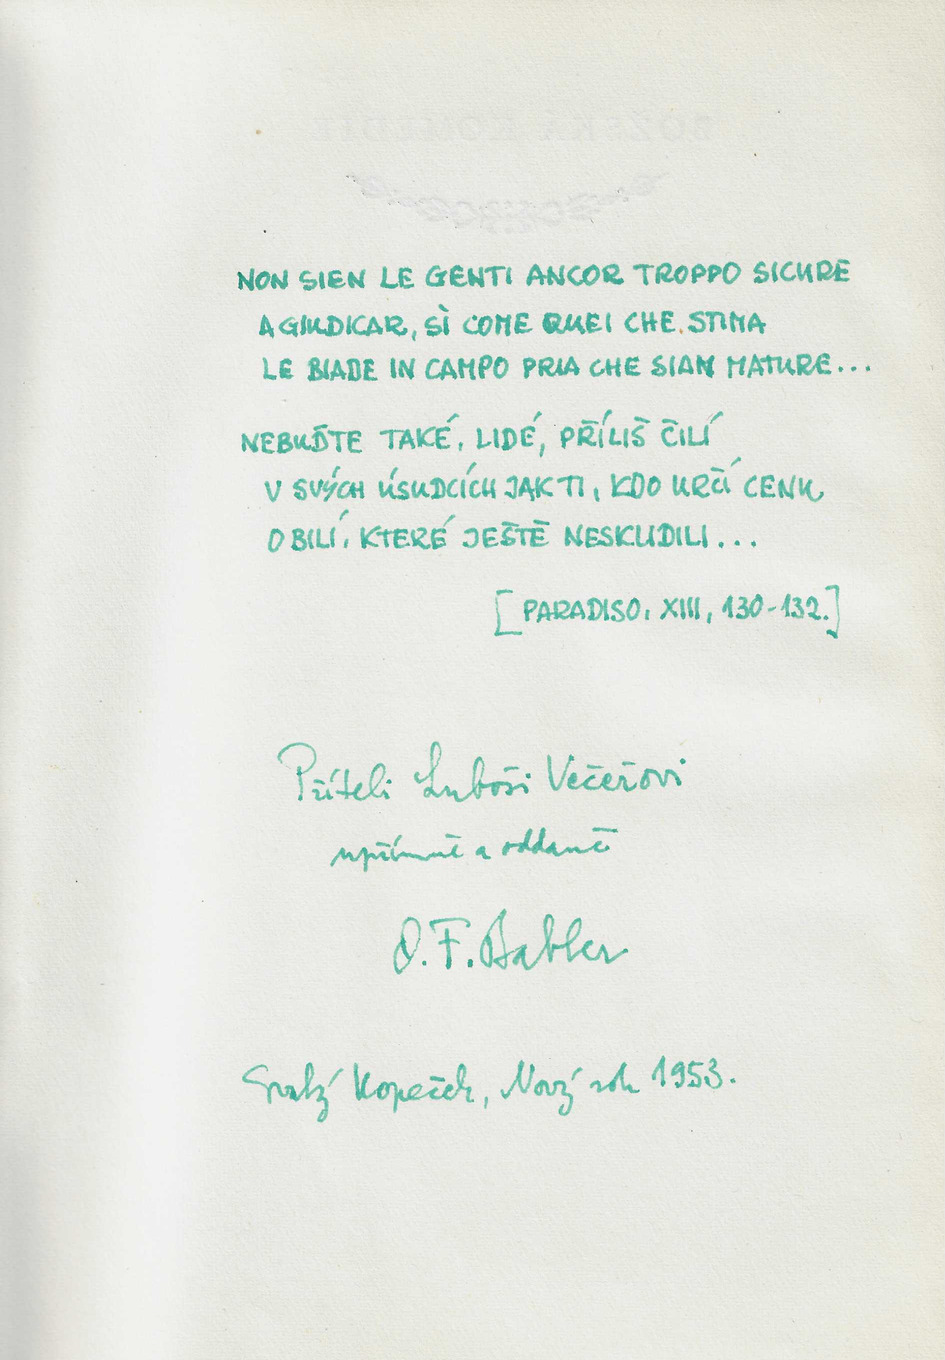 NON SIEN LE GENTI ANCOR TROPPO SICURE
A GIUDICAR, SÌ COME QUEI CHE STIMA
LE BIADE IN CAMPO PRIA CHE SIAN MATURE...
NEBUĎTE TAKÉ, LIDÉ, PŘÍLIŠ ČILÍ
V SVÝCH ÚSUDCÍCH JAK TI, KDO URČÍ CENU
OBILÍ, KTERÉ JEŠTĚ NESKLIDILI...
[PARADISO, XIII, 130-132.]
Příteli Luboši Večeřovi
upřímně a oddaně
O. F. Babler
Svatý Kopeček, Nový rok 1953.